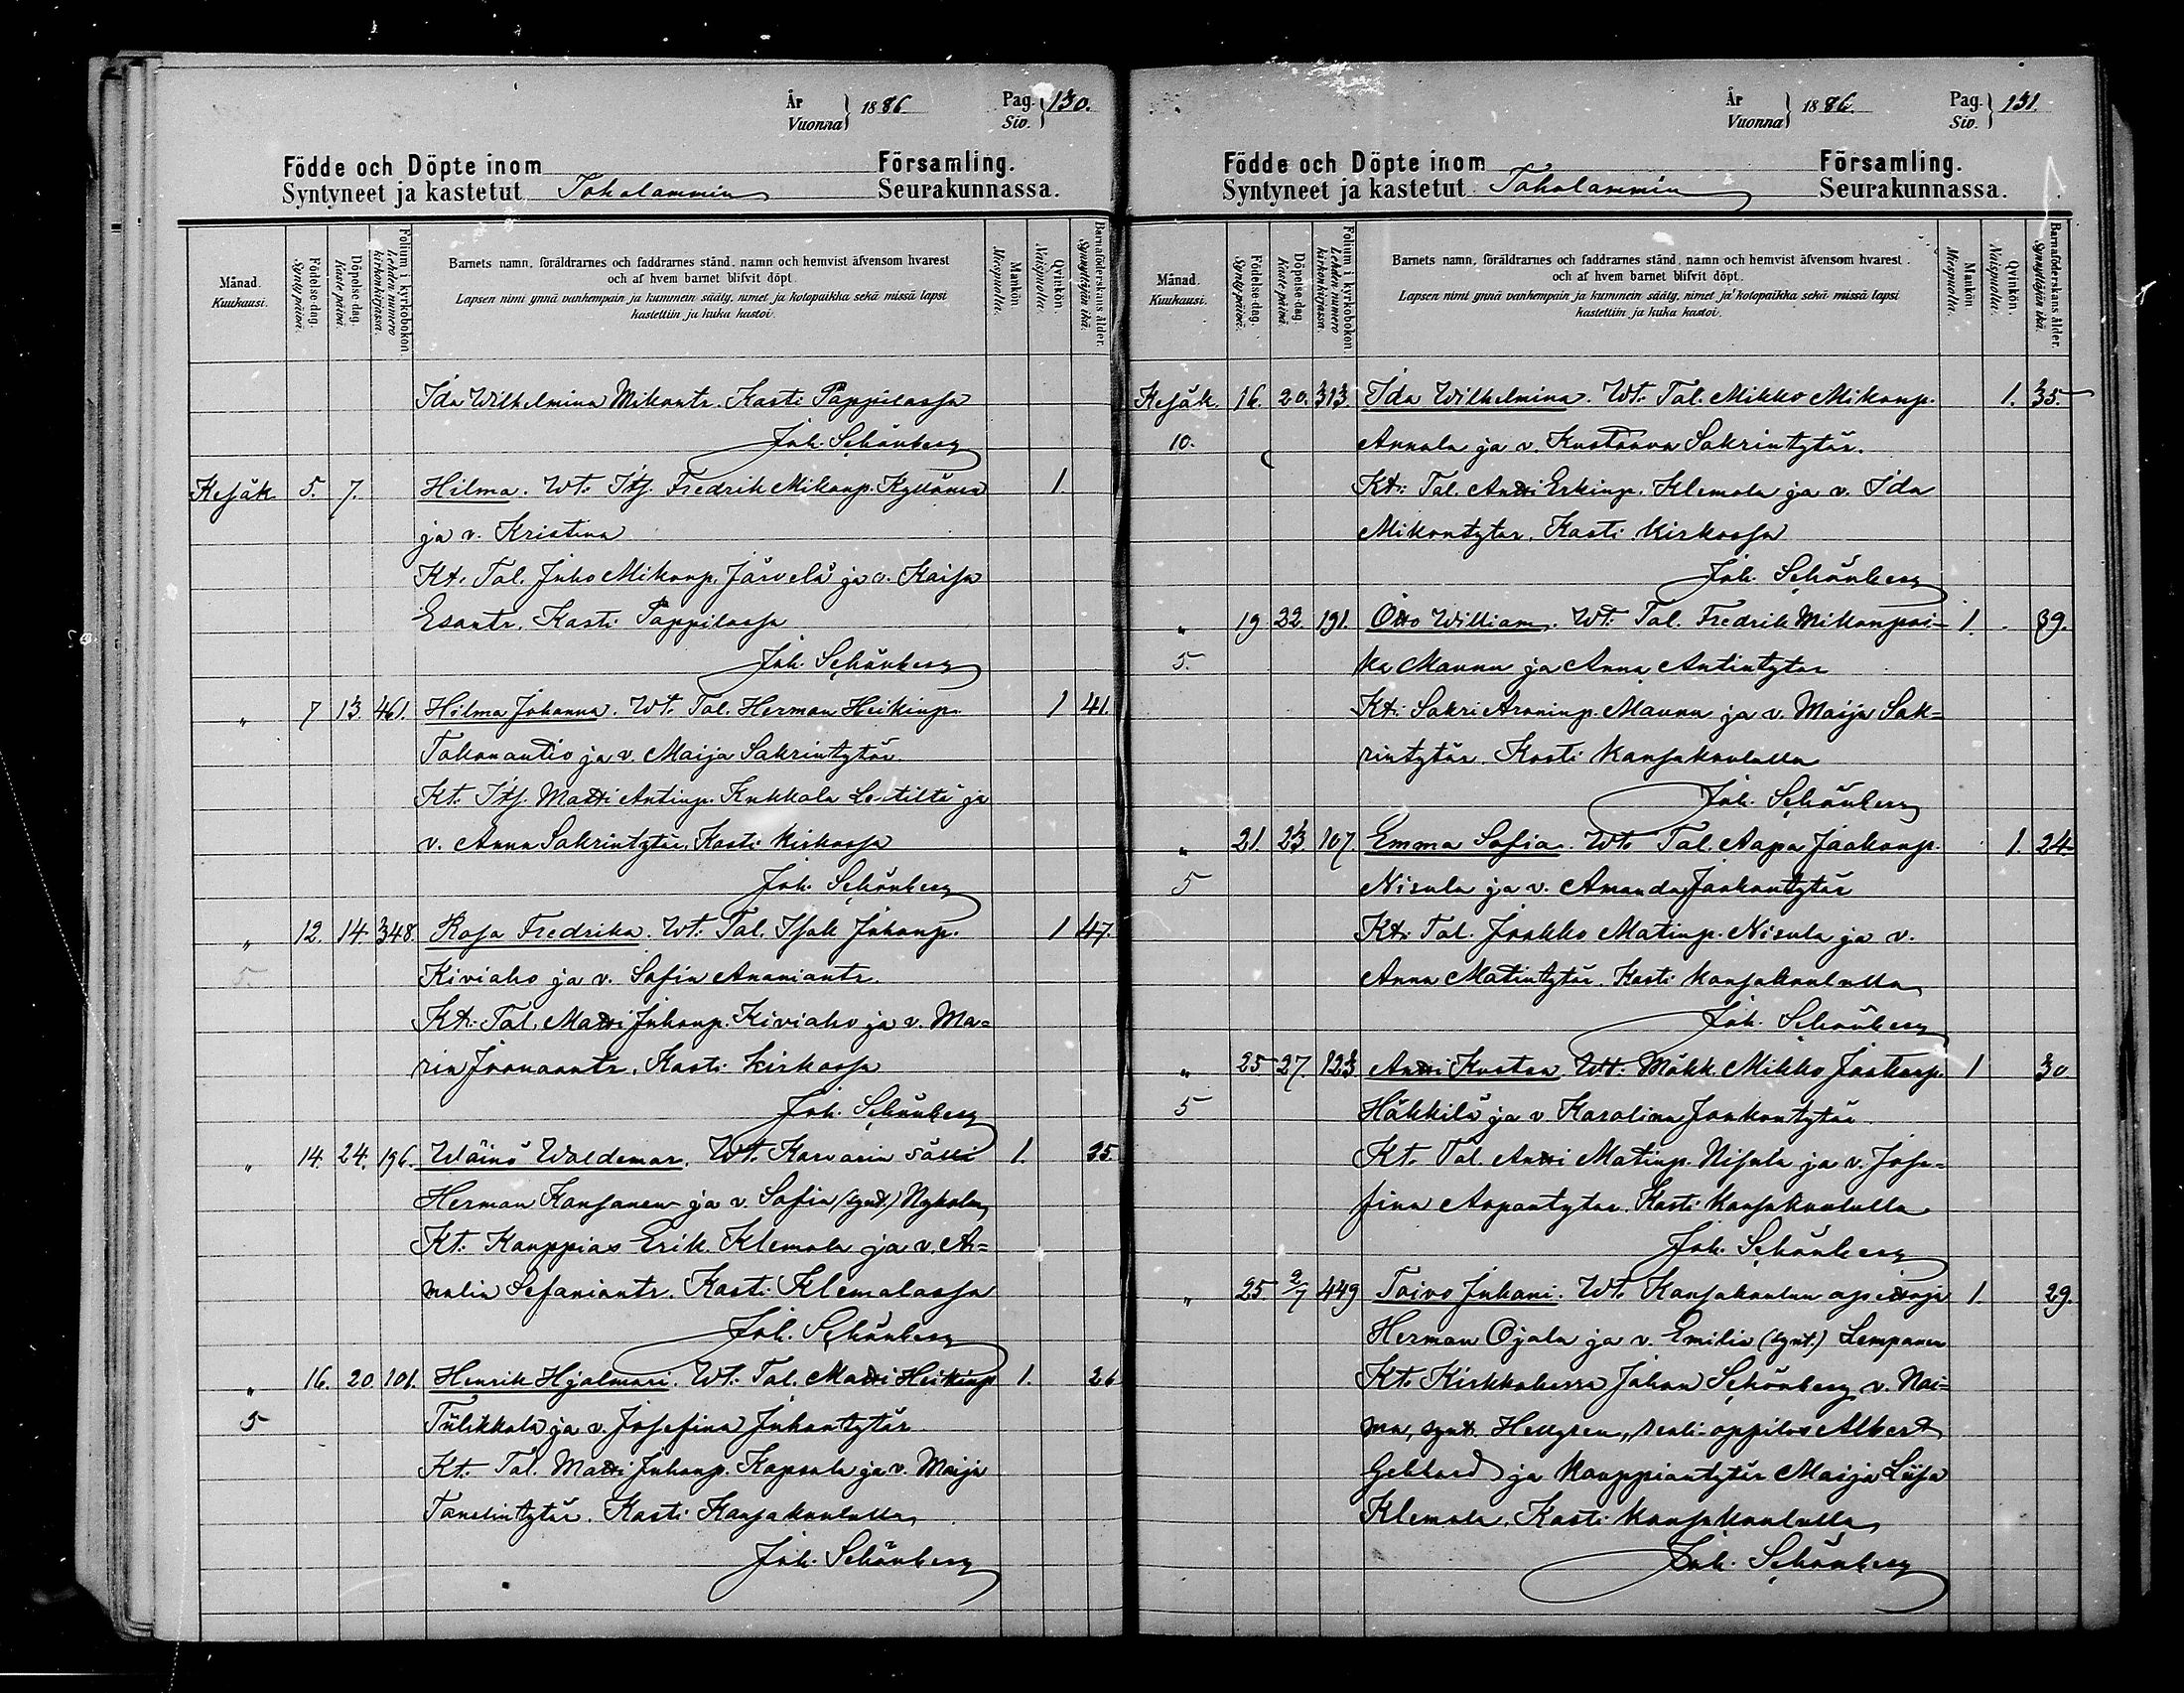 År
Vuonna } 1886.
Pag.
Siv. } 130.
Födde och Döpte inom Församling.
Syntyneet ja kastetut Toholammin Seurakunnassa.
Månad.
Kuukausi.
Födelse-dag.
Synty-päivä.
Döpelse-dag.
Kaste-päivä.
Folium i kyrkoboken.
Lehden numero kirkonkirjassa.
Barnets namn, föräldrarnes och faddrarnes stånd, namn och hemvist äfvensom hvarest
och af hvem barnet blifvit döpt.
Lapsen nimi ynnä vanhempain ja kummein sääty, nimet ja kotopaikka sekä missä lapsi
kastettiin ja kuka kastoi.
Mankön.
Miespuolia.
Qvinkön.
Naispuolia.
Barnaföderskans ålder.
Synnyttäjän ikä.
Ida Wilhelmina Mikontr. Kasti Pappilassa
Joh. Schönberg
Kesäk. 5. 7. Hilma. Wt. Its. Fredrik Mikonp. Kyllönen 1.
ja v. Kristina
Kt. Tal. Juho Mikonp. Järvelä ja v. Kaisa
Esantr. Kasti Pappilassa
Joh. Schönberg
„ 7 13 461. Hilma Johanna. Wt. Tal. Herman Heikinp. 1 41.
Tokonantio ja v. Maija Sakrintytär.
Kt. Its. Matti Antinp. Kukkola Lestiltä ja
v. Anna Sakrintytär, Kasti Kirkossa
Joh. Schönberg
„ 12. 14 348. Rosa Fredrika. Wt. Tal. Isak Juhonp. 1 47.
5. Kiviaho ja v. Sofia Ananiantr.
Kt. Tal. Matti Juhonp. Kiviaho ja v. Ma=
ria Joonaantr. Kasti kirkossa
Joh. Schönberg
„ 14. 24. 196. Wäinö Waldemar. Wt. Karvarin sälli 1. 35.
Herman Kansanen ja v. Sofia (synt) Nyholm
Kt. Kauppias Erik Klemola ja v. A=
malia Sefaniantr. Kasti Klemolassa
Joh. Schönberg
„ 16. 20. 101. Henrik Hjalmari. Wt. Tal. Matti Heikinp 1. 26
5 Tulikkala ja v. Josefina Juhontytär
Kt. Tal. Matti Juhonp. Kapsala ja v. Maija
Tanelintytär. Kasti Kansakoululla
Joh. Schönberg
År
Vuonna } 1886.
Pag.
Siv. } 131.
Födde och Döpte inom Församling.
Syntyneet ja kastetut Toholammin Seurakunnassa.
Månad.
Kuukausi.
Födelse-dag.
Synty-päivä.
Döpelse-dag.
Kaste-päivä.
Folium i kyrkoboken.
Lehden numero kirkonkirjassa.
Barnets namn, föräldrarnes och faddrarnes stånd, namn och hemvist äfvensom hvarest
och af hvem barnet blifvit döpt.
Lapsen nimi ynnä vanhempain ja kummein sääty, nimet ja kotopaikka sekä missä lapsi
kastettiin ja kuka kastoi.
Mankön.
Miespuolia.
Qvinkön.
Naispuolia.
Barnaföderskans ålder.
Synnyttäjän ikä.
Kesäk. 16. 20. 313. Ida Wilhelmina. Wt. Tal. Mikko Mikonp. 1. 35.
10. Annala ja v. Kustaava Sakrintytär.
Kt. Tal. Antti Erkinp. Klemola ja v. Ida
Mikontytar. Kasti Kirkossa
Joh. Schönberg
„ 19 22. 191. Otto William. Wt. Tal. Fredrik Mikonpoi= 1. 39.
5. ka Maunu ja Anna Antintytar
Kt. Sakri Aroninp. Maunu ja v. Maija Sak=
rintytär. Kasti Kansakoululla
Joh. Schönberg
„ 21. 23. 107. Emma Sofia. Wt. Tal. Aapa Jaakonp. 1. 24.
5 Nisula ja v. Amanda Jaakontytär
Kt. Tal. Jaakko Matinp. Nisula ja v.
Anna Matintytär. Kasti Kansakoululla
Joh. Schönberg
„ 25 27. 123 Antti Kustaa Wt. Mökk. Mikko Jaakonp. 1 30.
5 Häkkilä ja v. Karolina Jaakontytär.
Kt. Tal. Antti Matinp. Nisula ja v. Jose=
fina Aapantytar. Kasti Kansakoululla
Joh. Schönberg
„ 25. 2/7 449 Toivo Juhani. Wt. Kansakoulun opettaja 1. 29.
Herman Ojala ja v. Emilia (synt.) Lempanen
Kt. Kirkkoherra Johan Schönberg v. Nai=
ma, synt. Hellgren, reali-oppilas Albert
Gebhard ja Kauppiantytär Maija Liisa
Klemola. Kasti Kansakoululla
Joh. Schönberg